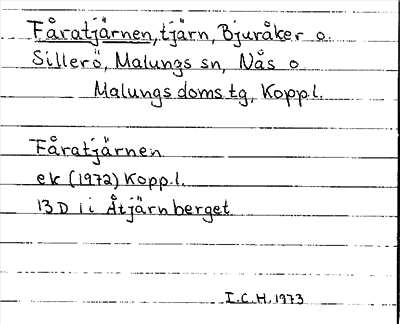 Fåratjärnen, tjärn, Bjuråker o.
Sillerö, Malungs sn, Nås o
Malungs domstg, Koppl.
Fåratjärnen
ek (1972) Koppl.
13 D 1 i Åtjärnberget
I.C.H. 1973